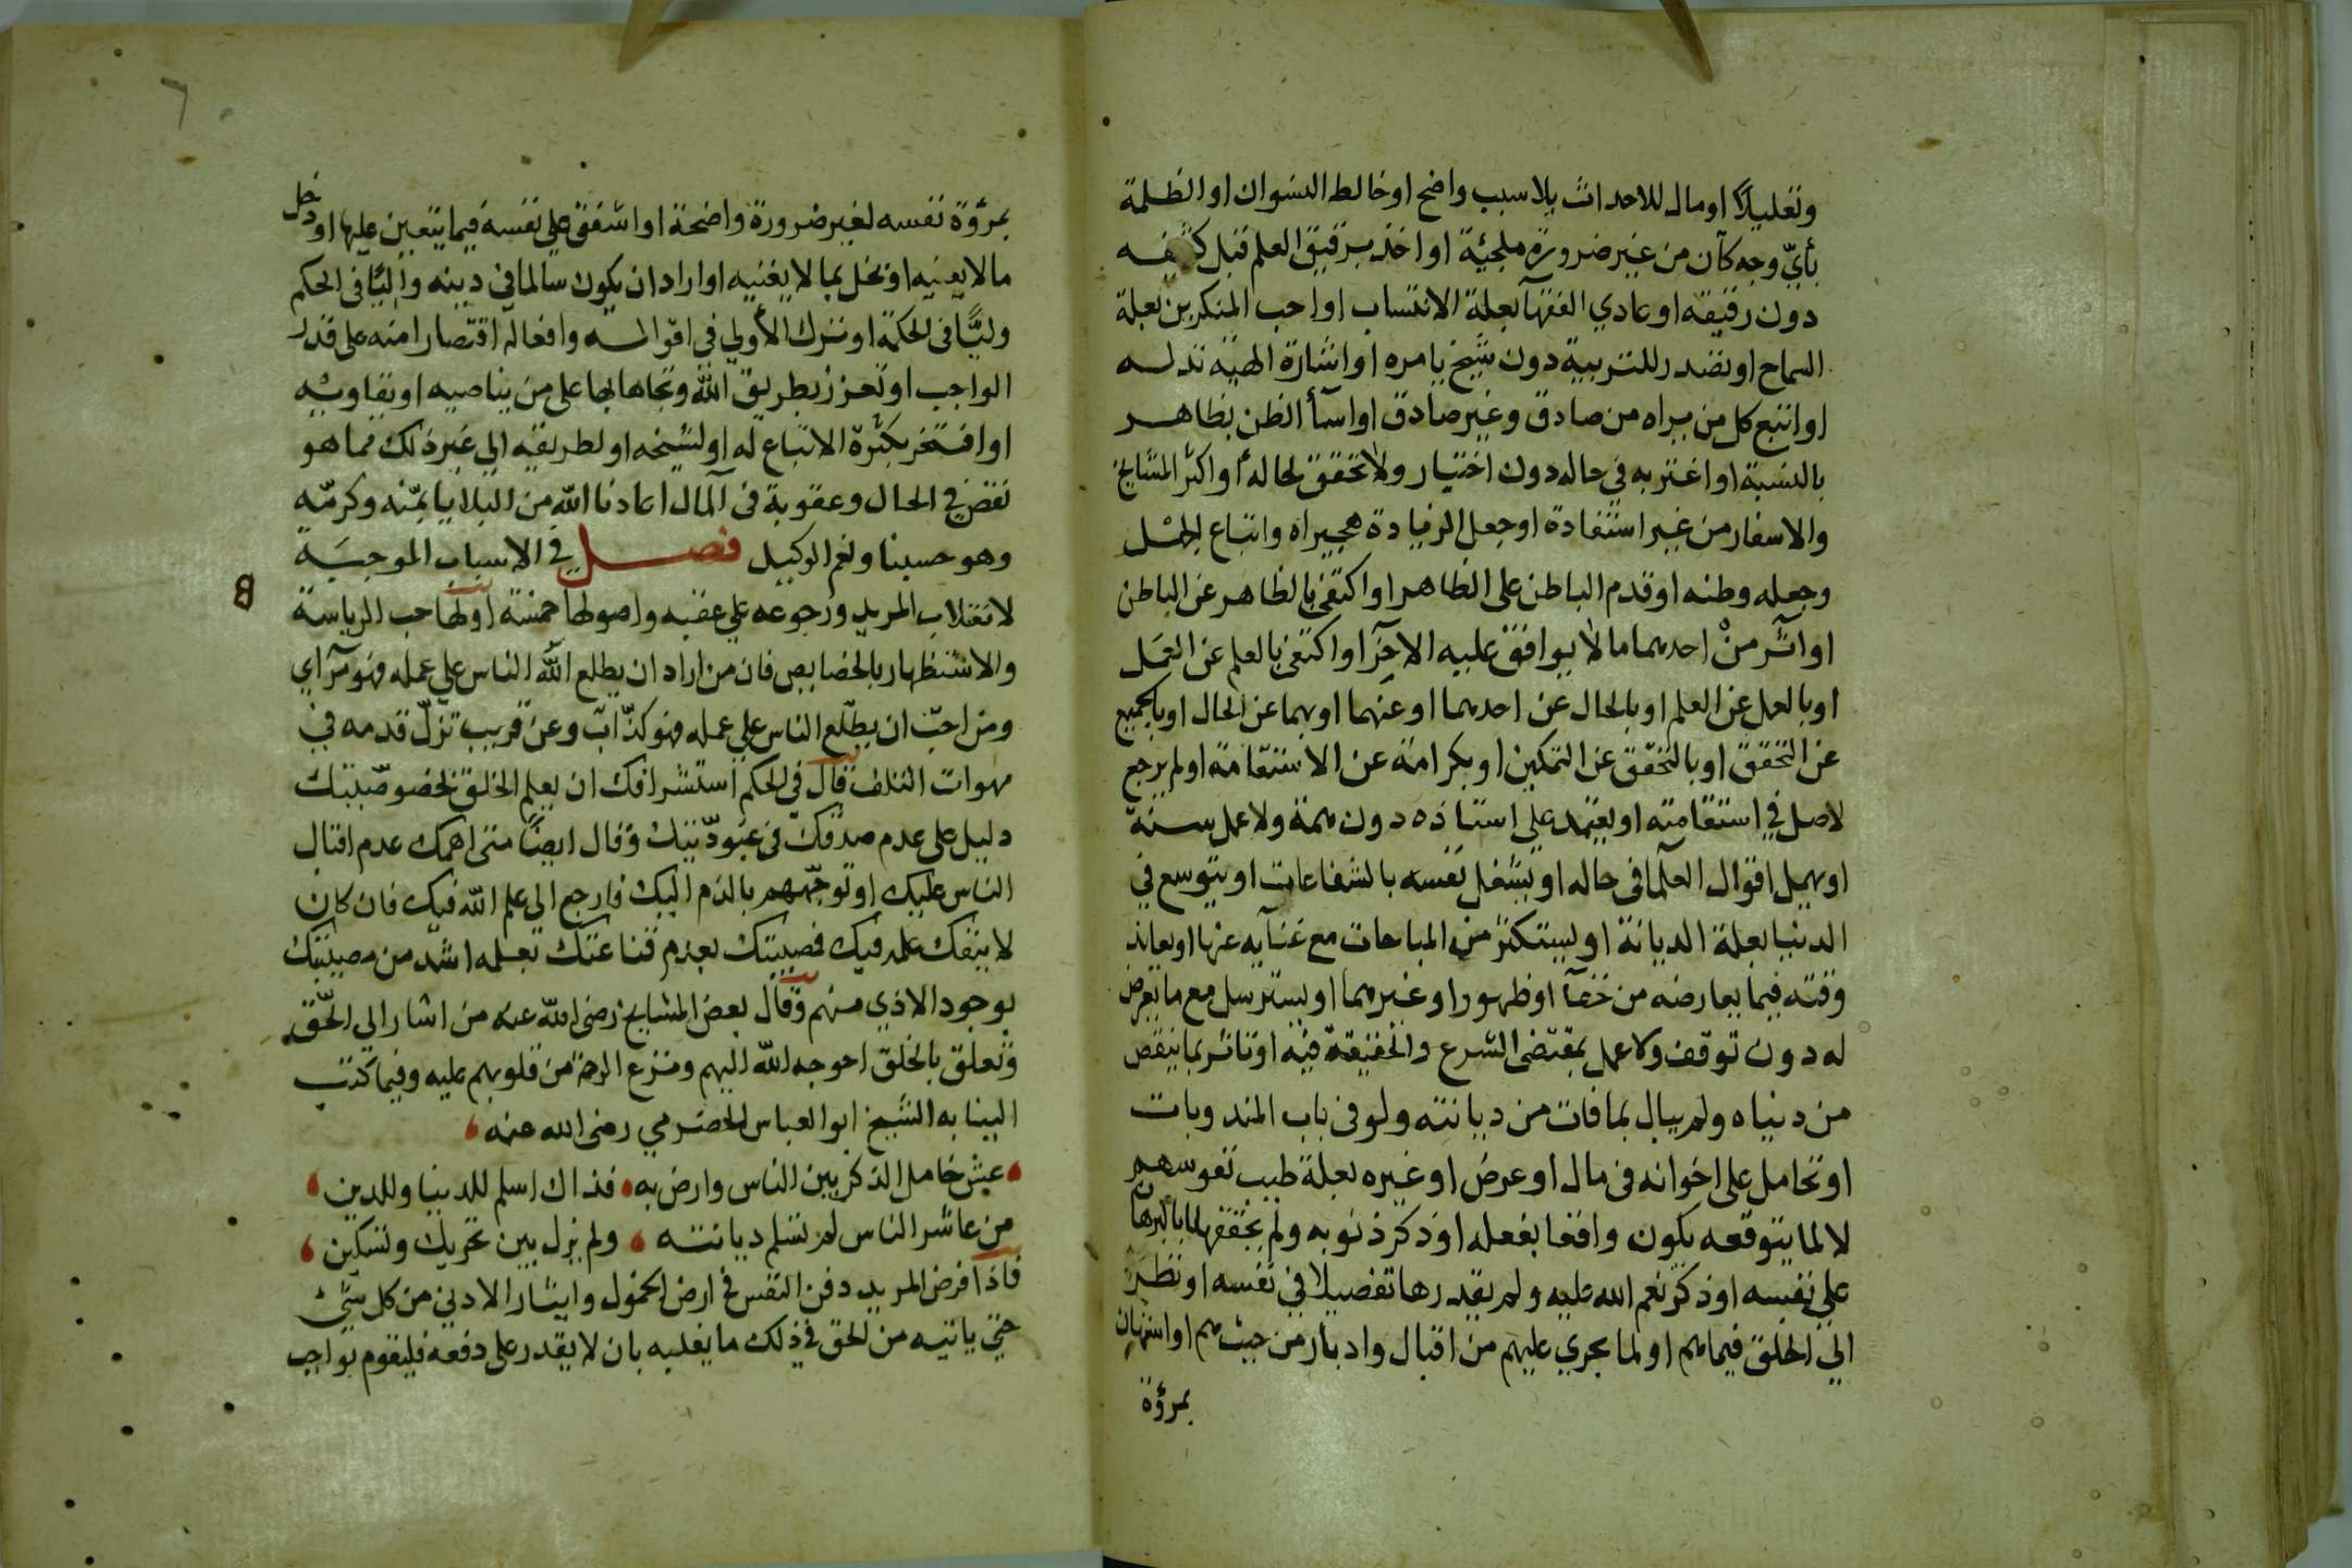 وتعليلاً او مال للاحداث بلا سبب واضح او خالط النسوان او الظلمة
بأيّ وجه كان من غير ضرورة ملجئة او اخذ برقيق العلم قبل
دون رقيقه او عادي الفقهآ بعلة الانتساب او احب المنكرين بعلة
السماح او تصدر للتربية دون شيخ يامره او اشارة الهية تدله
او اتبع كل من يراه من صادق وغير صادق او اسآ الظن بظاهر
بالنسبة او اغتر به في حاله دون اختيار ولا تحقق لحاله او اكثر المشايخ
والاسفار من غير استفادة او جعل الزيادة هجيراه واتباع
وجعله وطنه او قدم الباطن على الظاهر او اكتفى بالظاهر عن الباطن
او اثر من احدهما ما لا يوافق عليه الاخر او اكتفى بالعلم عن العمل
او بالعمل عن العلم او بالحال عن احدهما او عنهما او بهما عن الحال او بالجميع
عن التحقق او بالتحقق عن التمكين او بكرامة عن الاستقامة او لم يرجع
لاصل في استقامته او يعتمد على استاذه دون همة ولا عمل سنة
او يهمل اقوال العلما في حاله او يشغل نفسه بالشفاعات او يتوسع في
الدنيا بعلة الديانة او ليستكثر من المباحات مع غنآيه عنها او يعاند
وقته فيما يعارضه من خفآ او ظهور او غيرهما او يسترسل مع ما يعرض
له دون توقف ولا عمل بمقتضى الشرع والحقيقة فيه او تاثر بما ينقص
من دنياه ولم يبال بما فات من ديانته ولو في باب المندوبات
او تحامل على اخوانه في مال او عرض او غيره لعلة طيب نفوسهم
لا لما يتوقعه يكون واقعا بفعله او ذكر ذنوبه ولم يحققها
على نفسه او ذكر نعم الله عليه ولم يقدرها تفصيلا في نفسه او نظر
الى الخلق فيما هم او لما يجري عليهم من اقبال وادبار من حيث هم او استهان
بمرؤة
بمرؤة نفسه لغير ضرورة واضحة او اشفق على نفسه فيما يتعين عليها او دخل
ما لا يعنيه او بخل بما لا يغنيه او اراد ان يكون سالما في دينه في الحكم
في الحكمة او ترك الأولي في اقواله وافعاله اقتصارا منه على قدر
الواجب او تعزز بطريق الله وتجاها بها على من يناصيه او يقاويه
او افتخر بكثرة الاتباع له او لشيخه او لطريقه الى غير ذلك مما هو
نقص في الحال وعقوبة في المال اعاذنا الله من البلايا بمنّه وكرمه
وهو حسبنا ونعم الوكيل فصل في الاسباب الموجبة
لانقلاب المريد ورجوعه على عقبه واصولها خمسة اولها حب الرياسة
والاستظهار بالخصايص فان من اراد ان يطلع الله الناس على عمله فهو مرآي
ومن احبّ ان يطلع الناس على عمله فهو كذّاب وعن قريب تزلّ قدمه في
مهوات التلف قال في الحكم استشرافك ان يعلم الخلق بخصوصيتك
دليل على عدم صدقك في عبوديّتك وقال ايضاً متى اهمك عدم اقبال
الناس عليك او توجّههم بالذم اليك فارجع الى علم الله فيك فان كان
لا ينفك علمه فيك فمصيبتك بعدم قناعتك بعلمه اشد من مصيبتك
بوجود الاذي منهم وقال بعض المشايخ رضى الله عنه من اشار الي الحق
وتعلق بالخلق احوجه الله اليهم ونزع الرحمة من قلوبهم عليه وفيما كتب
الينا به الشيخ ابو العباس الحضرمي رضى الله عنه
عش خامل الذكر بين الناس وارض به فذاك اسلم للدنيا وللدين
من عاشر الناس لم تسلم ديانته ولم يزل بين تحريك وتسكين
فاذا فرض المريد دفن النفس في ارض الخمول وايثار الادني من كل شيء
حتى ياتيه من الحق في ذلك ما يغلبه بان لا يقدر على دفعه فليقوم بواجب